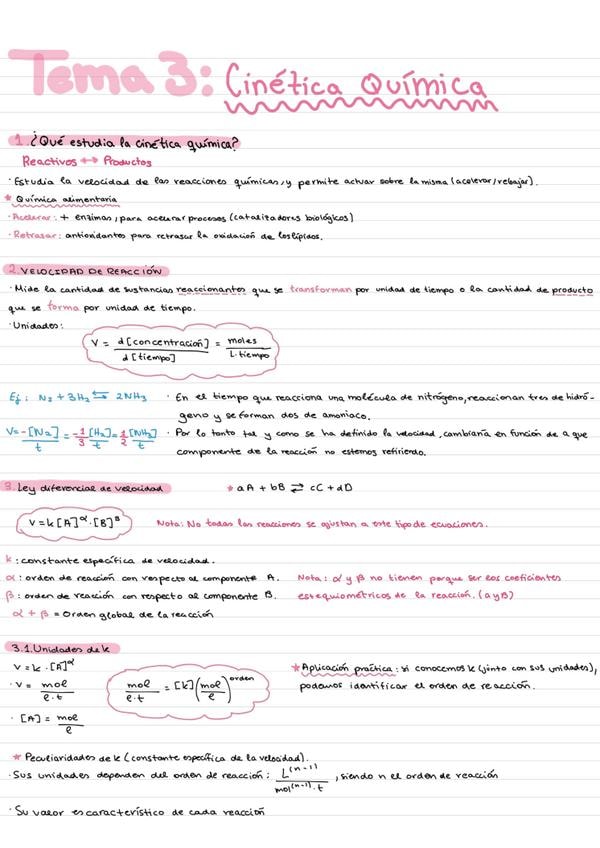 Tema 3: Cinética Química
1. ¿Qué estudia la cinética química?
Reactivos ↔ Productos
· Estudia la velocidad de las reacciones químicas, y permite actuar sobre la misma (acelerar/rebajar).
* Química alimentaria
· Acelerar: + enzimas, para acelerar procesos (catalizadores biológicos)
· Retrasar: antioxidantes para retrasar la oxidación de los lípidos.
2. VELOCIDAD DE REACCIÓN
· Mide la cantidad de sustancias reaccionantes que se transforman por unidad de tiempo o la cantidad de producto
que se forma por unidad de tiempo.
· Unidades:
V = d[concentración] / d[tiempo] = moles / L·tiempo
Ej: N2 + 3H2 ⇆ 2NH3 · En el tiempo que reacciona una molécula de nitrógeno, reaccionan tres de hidró-
geno y se forman dos de amoniaco.
V = -[N2]/t = -1/3 [H2]/t = 1/2 [NH3]/t · Por lo tanto tal y como se ha definido la velocidad, cambiaría en función de a que
componente de la reacción no estemos refiriendo.
3. Ley diferencial de velocidad * aA + bB ⇄ cC + dD
V = k [A]^α · [B]^β Nota: No todas las reacciones se ajustan a este tipo de ecuaciones.
k: constante específica de velocidad.
α: orden de reacción con respecto al componente A. Nota: α y β no tienen porque ser los coeficientes
β: orden de reacción con respecto al componente B. estequiométricos de la reacción. (a y B)
α + β = Orden global de la reacción
3.1. Unidades de k
V = k · [A]^α * Aplicación práctica: si conocemos k (junto con sus unidades),
· V = mol / l·t mol / l·t = [k] (mol / l)^orden podemos identificar el orden de reacción.
· [A] = mol / l
* Peculiaridades de k (constante específica de la velocidad).
· Sus unidades dependen del orden de reacción: L^(n-1) / mol^(n-1) · t, siendo n el orden de reacción
· Su valor es característico de cada reacción